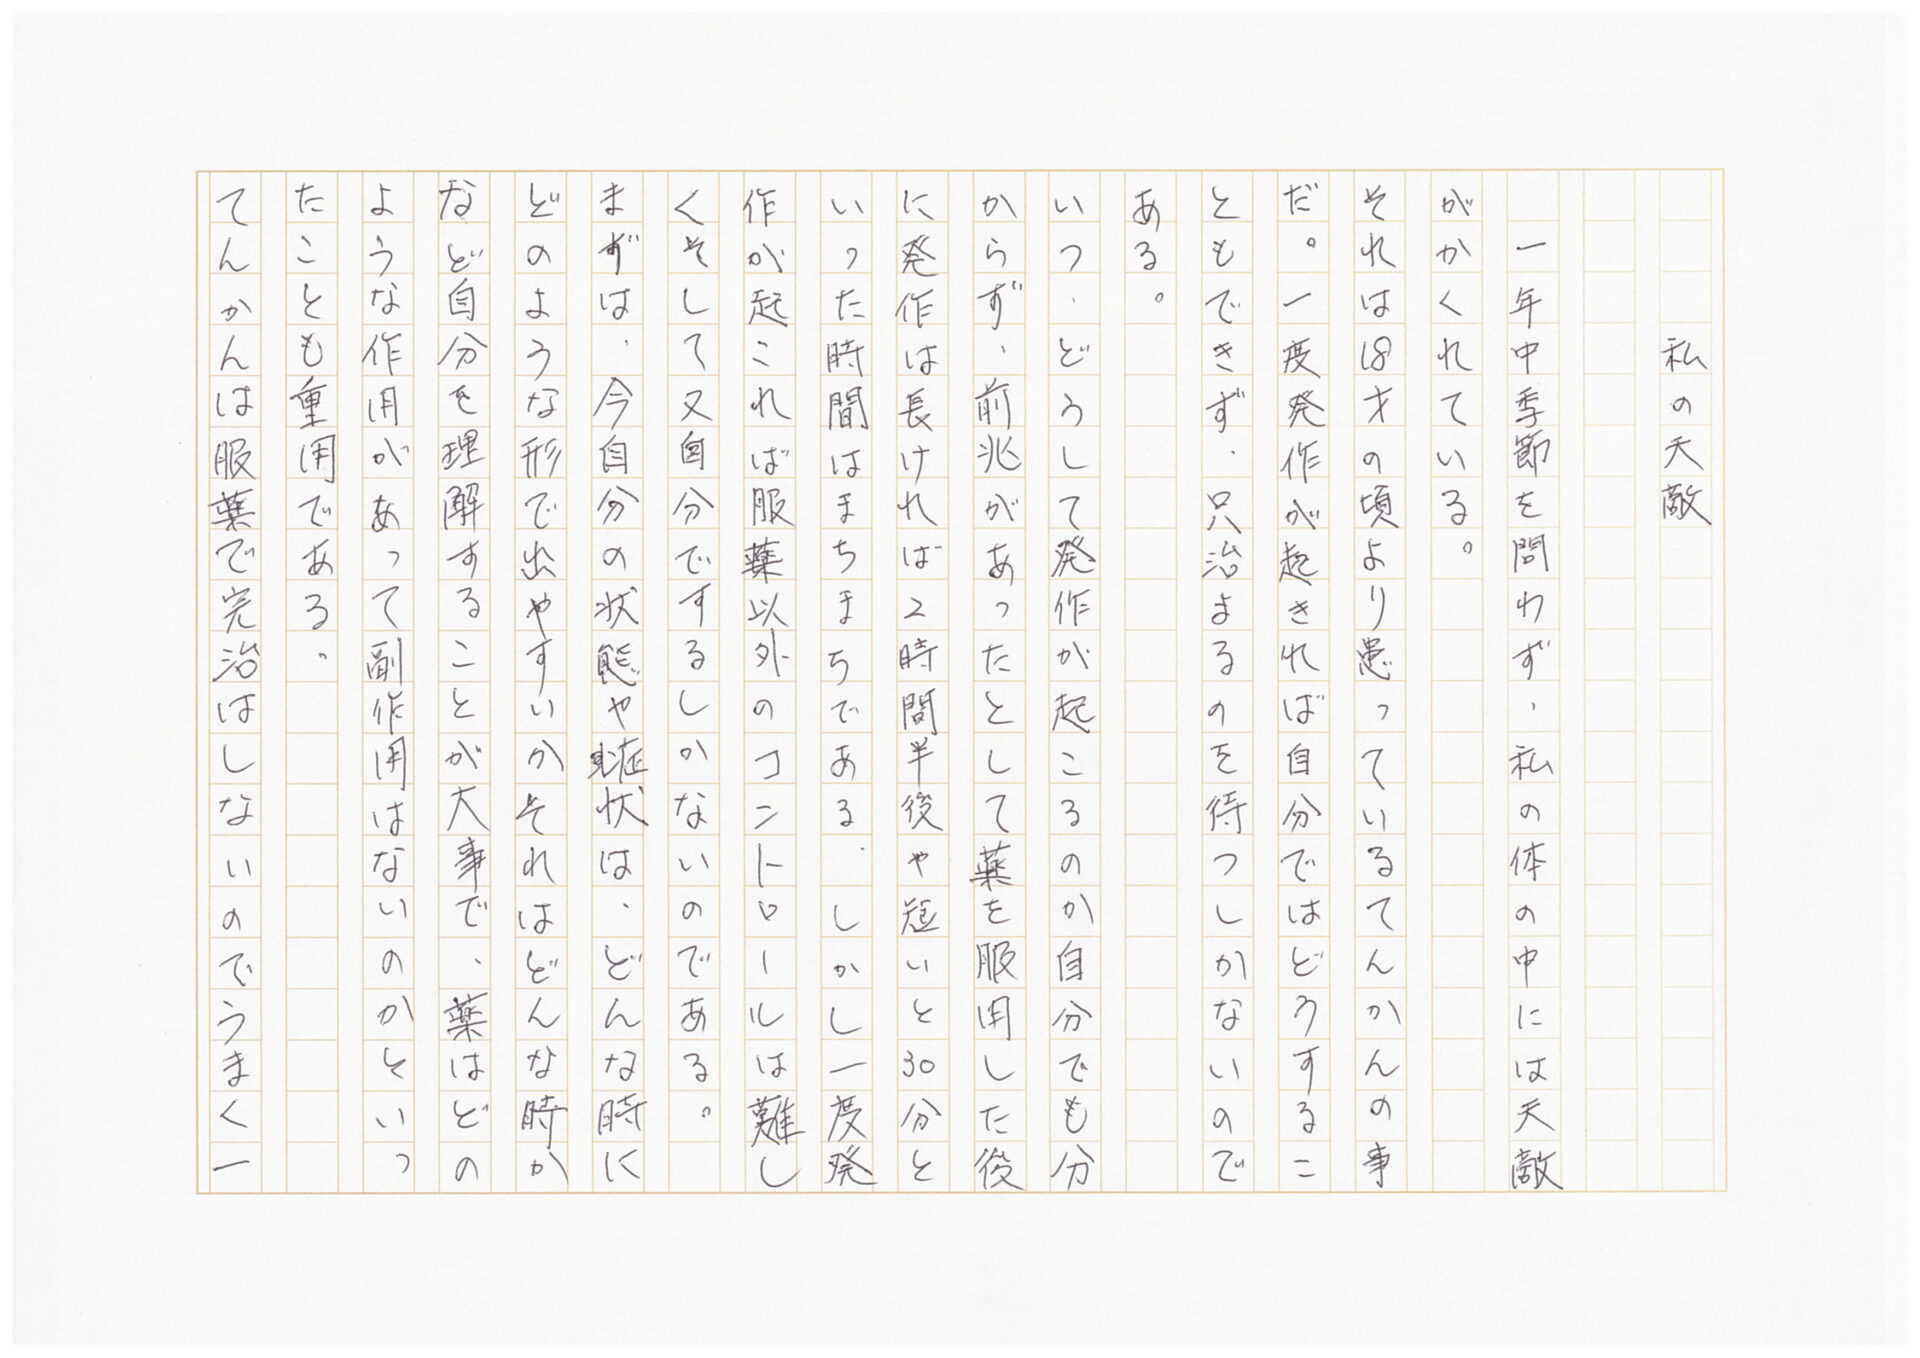 私の天敵
一年中季節を問わず、私の体の中には天敵
がかくれている。
それは18才の頃より患っているてんかんの事
だ。一度発作が起きれば自分ではどうするこ
ともできず、只治まるのを待つしかないので
ある。
いつ、どうして発作が起こるのか自分でも分
からず、前兆があったとして薬を服用した後
に発作は長ければ2時間半後や短いと30分と
いった時間はまちまちである、しかし一度発
作が起これば服薬以外のコントロールは難し
くそして又自分でするしかないのである。
まずは、今自分の状態や症状は、どんな時に
どのような形で出やすいかそれはどんな時か
など自分を理解することが大事で、薬はどの
ような作用があって副作用はないのかといっ
たことも重用である。
てんかんは服薬で完治はしないのでうまく一